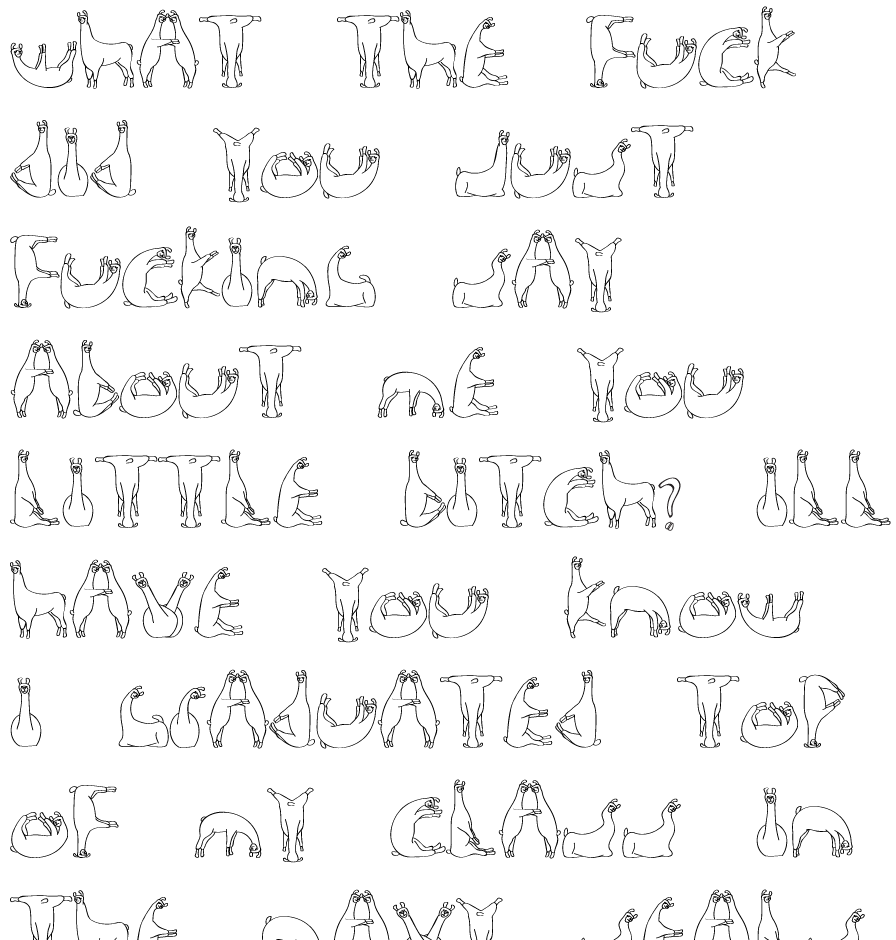 WHAT THE FUCK
DID YOU JUST
FUCKING SAY
ABOUT ME YOU
LITTLE BITCH? ILL
HAVE YOU KNOW
I GRADUATED TOP
OF MY CLASS IN
THE NAVY SEALS